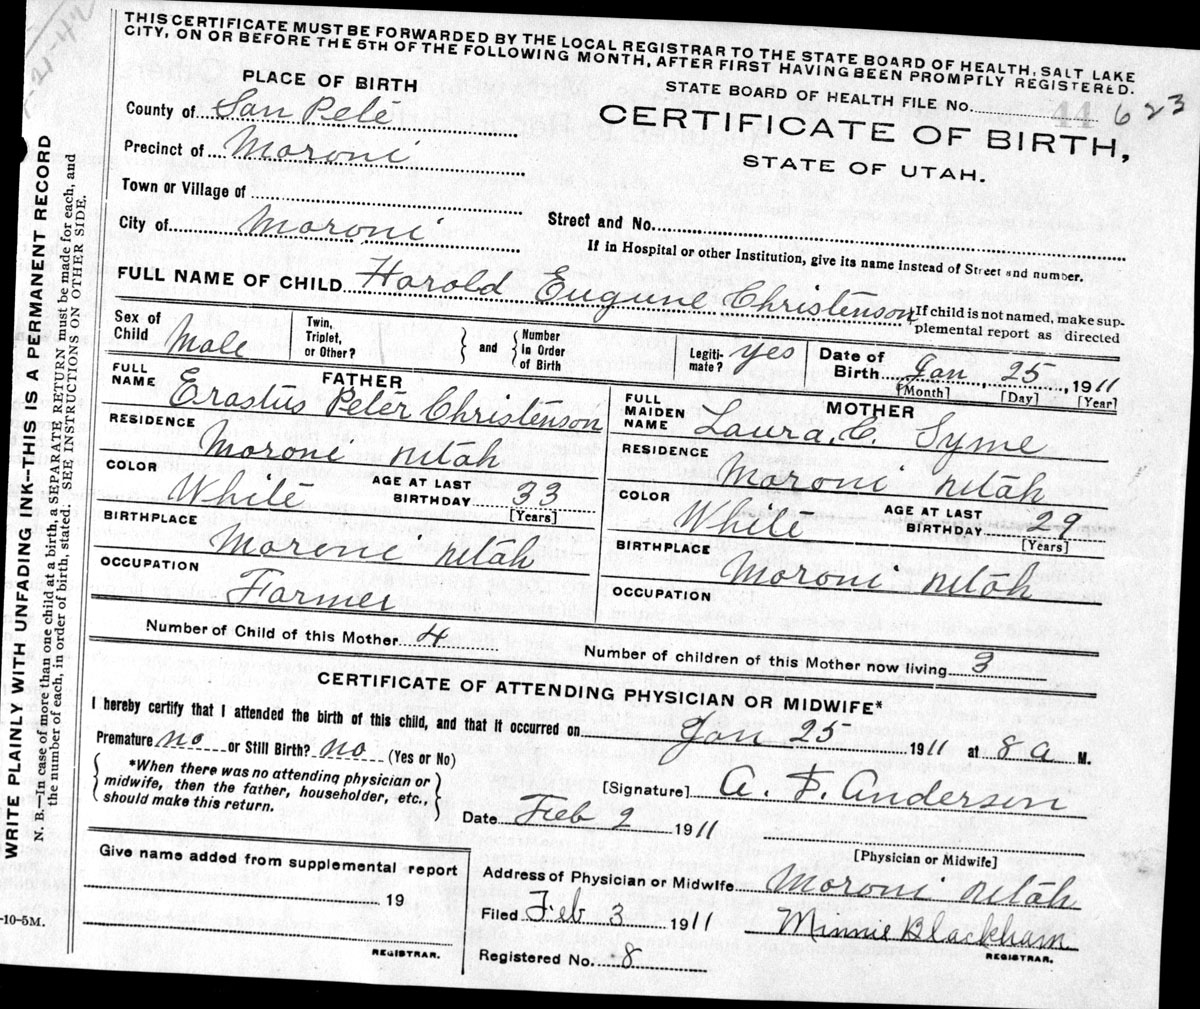 THIS CERTIFICATE MUST BE FORWARDED BY THE LOCAL REGISTRAR TO THE STATE BOARD OF HEALTH, SALT LAKE
CITY, ON OR BEFORE THE 5TH OF THE FOLLOWING MONTH, AFTER FIRST HAVING BEEN PROMPTLY REGISTERED.
PLACE OF BIRTH
STATE BOARD OF HEALTH FILE No. 44 623
County of San Pete
CERTIFICATE OF BIRTH,
Precinct of Moroni
STATE OF UTAH.
Town or Village of
City of Moroni
Street and No.
If in Hospital or other Institution, give its name instead of Street and number.
FULL NAME OF CHILD Harold Eugune Christenson
If child is not named, make sup-
plemental report as directed
Sex of Child Male
Twin, Triplet, or Other?
and
Number in Order of Birth
Legiti-mate? yes
Date of Birth Jan, 25, 1911
[Month] [Day] [Year]
FATHER
FULL NAME Erastus Peter Christenson
RESIDENCE Moroni Utah
COLOR White
AGE AT LAST BIRTHDAY 33
[Years]
BIRTHPLACE Moroni Utah
OCCUPATION Farmer
MOTHER
FULL MAIDEN NAME Laura, C. Syme
RESIDENCE Moroni Utah
COLOR White
AGE AT LAST BIRTHDAY 29
[Years]
BIRTHPLACE Moroni Utah
OCCUPATION
Number of Child of this Mother 4
Number of children of this Mother now living 3
CERTIFICATE OF ATTENDING PHYSICIAN OR MIDWIFE*
I hereby certify that I attended the birth of this child, and that it occurred on Jan 25 1911 at 8 a M.
Premature no or Still Birth? no (Yes or No)
*When there was no attending physician or
midwife, then the father, householder, etc.,
should make this return.
[Signature] A. F. Anderson
Date Feb 2 1911
[Physician or Midwife]
Give name added from supplemental report
19
REGISTRAR.
Address of Physician or Midwife Moroni Utah
Filed Feb 3 1911
Minnie Blackham
REGISTRAR.
Registered No. 8
WRITE PLAINLY WITH UNFADING INK—THIS IS A PERMANENT RECORD
N. B.—In case of more than one child at a birth, a SEPARATE RETURN must be made for each, and
the number of each, in order of birth, stated. SEE INSTRUCTIONS ON OTHER SIDE.
-10-5M.